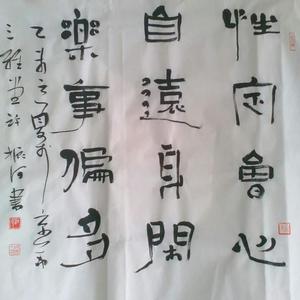 性定會心
自遠身閑
樂事偏多
乙未之夏於京
堂許振河書